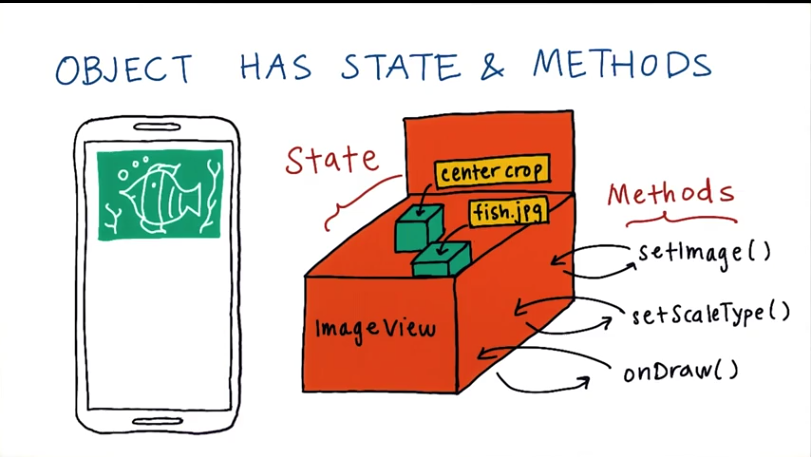 OBJECT HAS STATE & METHODS
State
center crop
fish.jpg
ImageView
Methods
setImage()
setScaleType()
onDraw()